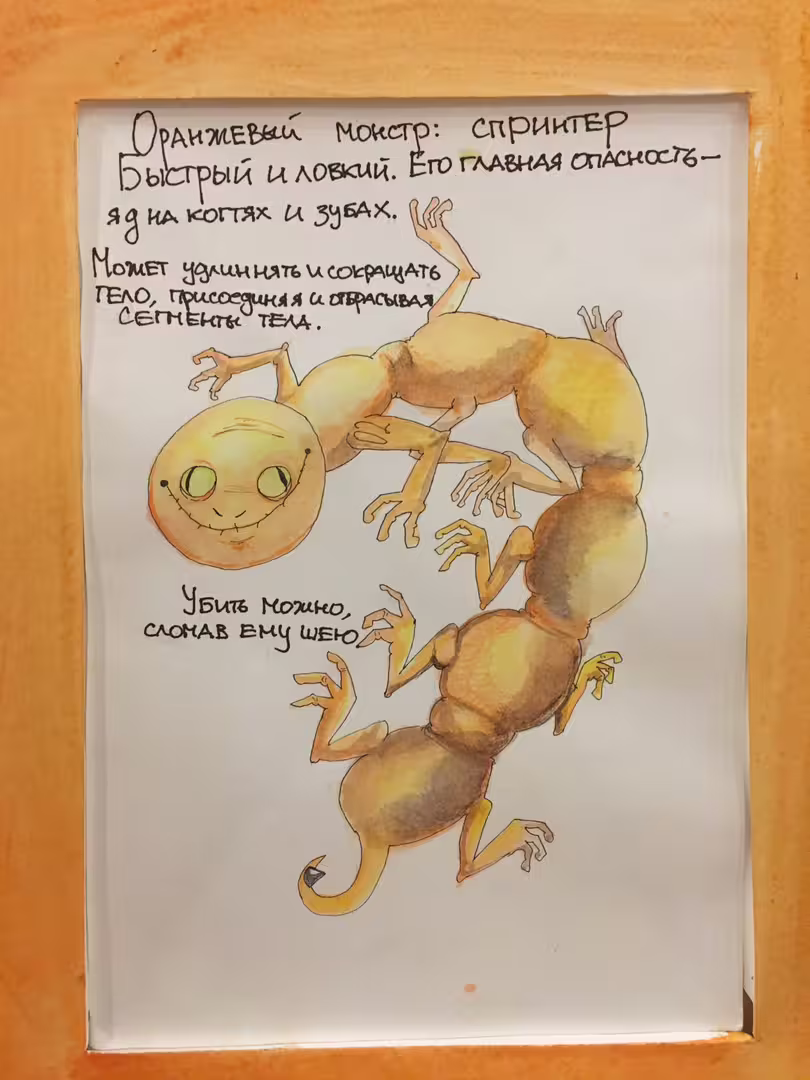 Оранжевый монстр: спринтер
Быстрый и ловкий. Его главная опасность —
яд на когтях и зубах.
Может удлиннять и сокращать
тело, присоединяя и отбрасывая
сегменты тела.
Убить можно,
сломав ему шею